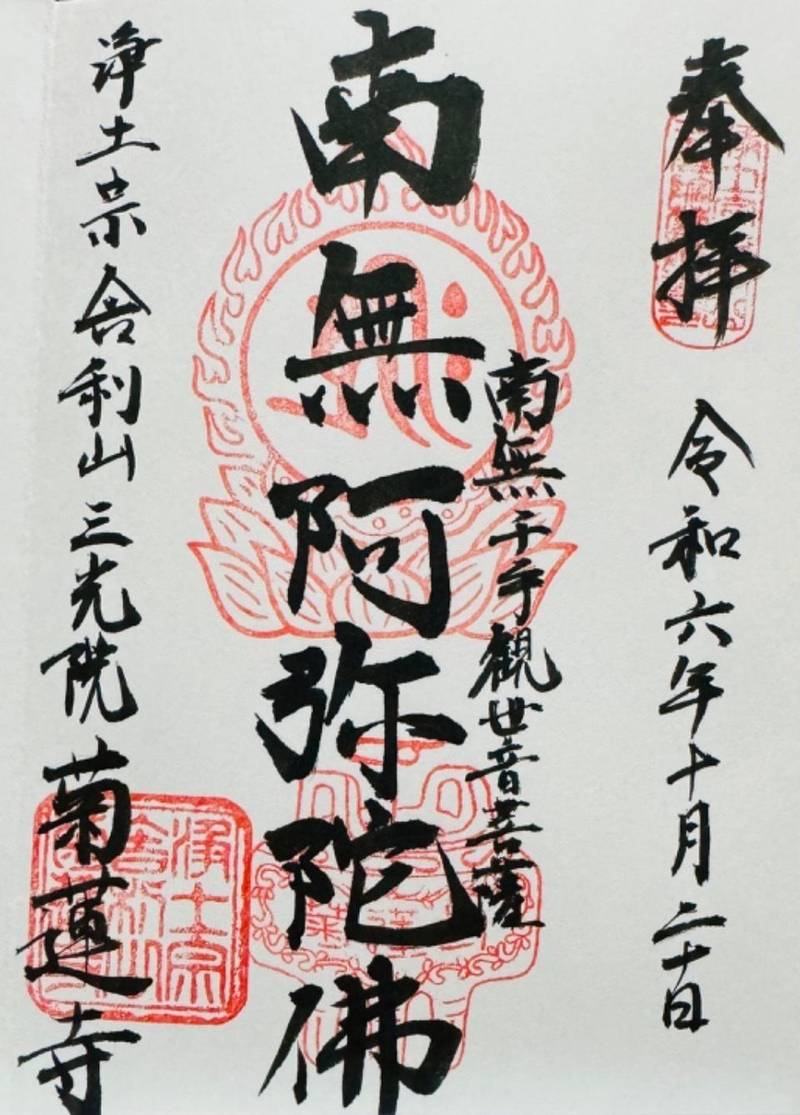 奉拝
令和六年十月二十日
南無千手観世音菩薩
南無阿弥陀佛
浄土宗舎利山三光院
菊蓮寺